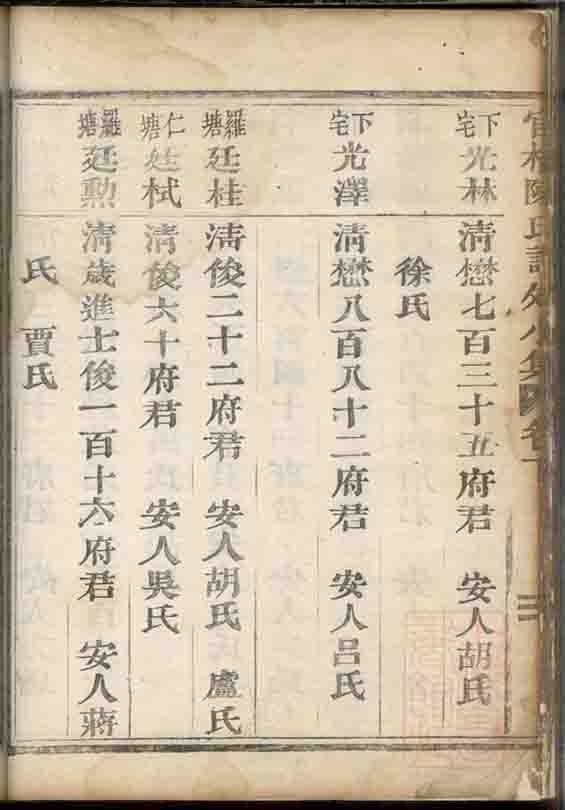 官橋陳氏
下宅光林 清懋七百三十五府君 安人胡氏
徐氏
下宅光澤 清懋八百八十二府君 安人呂氏
羅塘廷桂 清俊二十二府君 安人胡氏 盧氏
仁塘廷栻 清俊六十府君 安人吳氏
羅塘廷勲 清歲進士俊一百十六府君 安人蔣
氏 賈氏